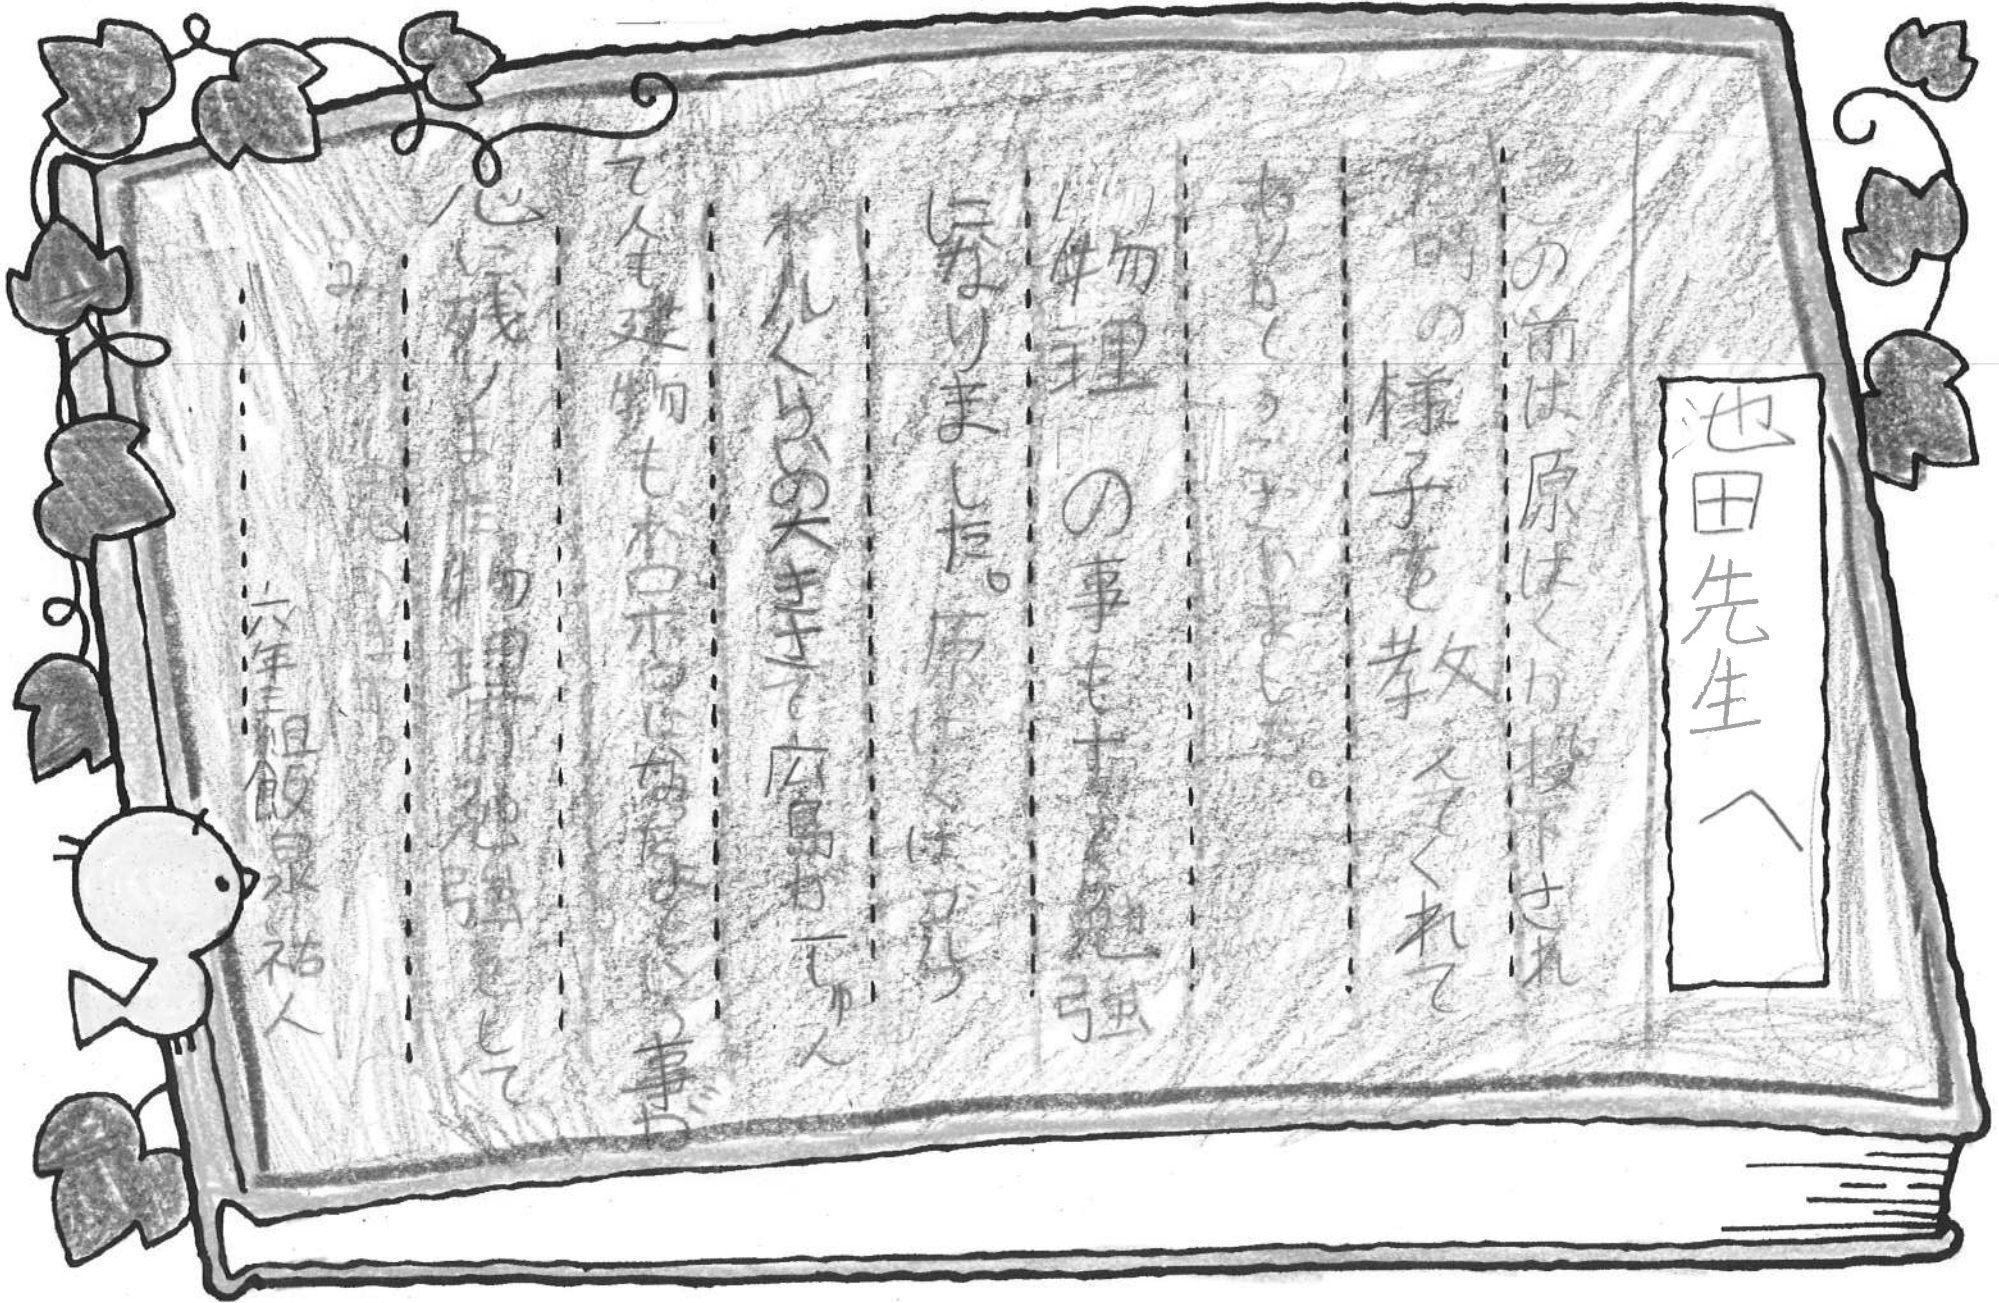 池田先生へ
この前は原ばくが投下され
た時の様子を教えてくれて
ありがとうございました。
物理の事もすごく勉強
になりました。原ばくはボウ
ルくらいの大きさで広島がいっしゅん
で人も建物もボロボロになったという事が
心に残りました物理の勉強をして
みたいと思います。
六年三組飯泉祐人